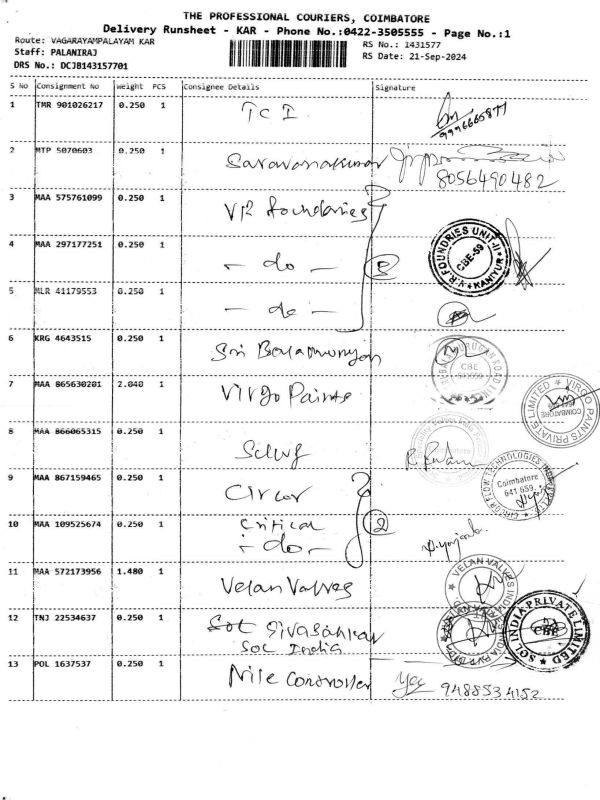 THE PROFESSIONAL COURIERS, COIMBATORE
Delivery Runsheet - KAR - Phone No.:0422-3505555 - Page No.:1
Route: VAGARAYAMPALAYAM KAR
RS No.: 1431577
Staff: PALANIRAJ
RS Date: 21-Sep-2024
DRS No.: DCJB143157701
S No Consignment No Weight PCS Consignee Details Signature
1 TMR 901026217 0.250 1 TCI
2 MTP 5070603 0.250 1 Saravanakumar
8056490482
3 MAA 575761099 0.250 1 VR foundaries
4 MAA 297177251 0.250 1 - do -
V.R. FOUNDRIES UNIT-II CBE-59 KANIYUR
5 MLR 41179553 0.250 1 - do -
6 KRG 4643515 0.250 1 Sri Balamurugan
CBE
7 MAA 865630201 2.040 1 Virgo Paints
VIRGO PAINTS PRIVATE LIMITED COIMBATORE
8 MAA 866065315 0.250 1
9 MAA 867159465 0.250 1 Circor
CIRCOR FLOW TECHNOLOGIES Coimbatore 641 659
10 MAA 109525674 0.250 1 Critical
- do - 2
11 MAA 572173956 1.480 1 Velan Valves
VELAN VALVES INDIA
12 TNJ 22534637 0.250 1 Sivasankar
SOL India
SOL INDIA PRIVATE LIMITED CBE
13 POL 1637537 0.250 1 Nile Controller 9488534152